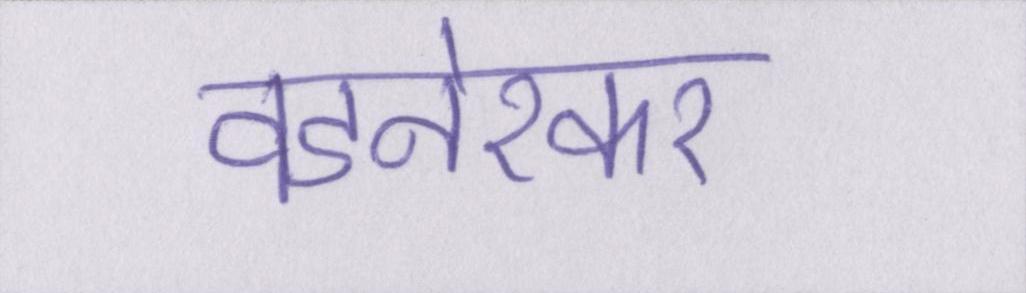 वडनेरकर